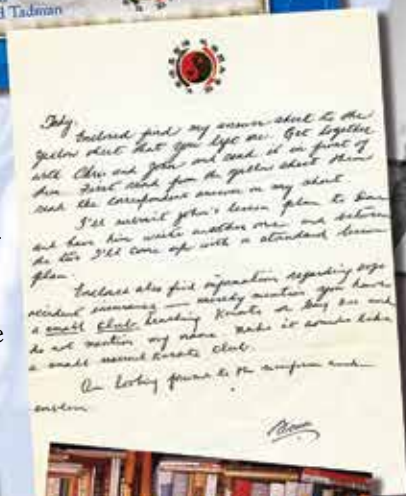 d Tadman
Enclosed find my answer sheet to the
yellow sheet that you left me. Get together
with Chris and John and read it in front of
them. First read from the yellow sheet then
read the correspondent answer in my sheet
I'll submit John's lesson plan to Dan
and have him write another one and between
the two I'll come up with a standard lesson
plan.
Enclosed also find information regarding
accident insurance — merely mention you have
a small club teaching Karate or and
do not mention my name. Make it sounds like
a small Karate club.
Am looking forward to the uniform and
emblem.
Bruce
e